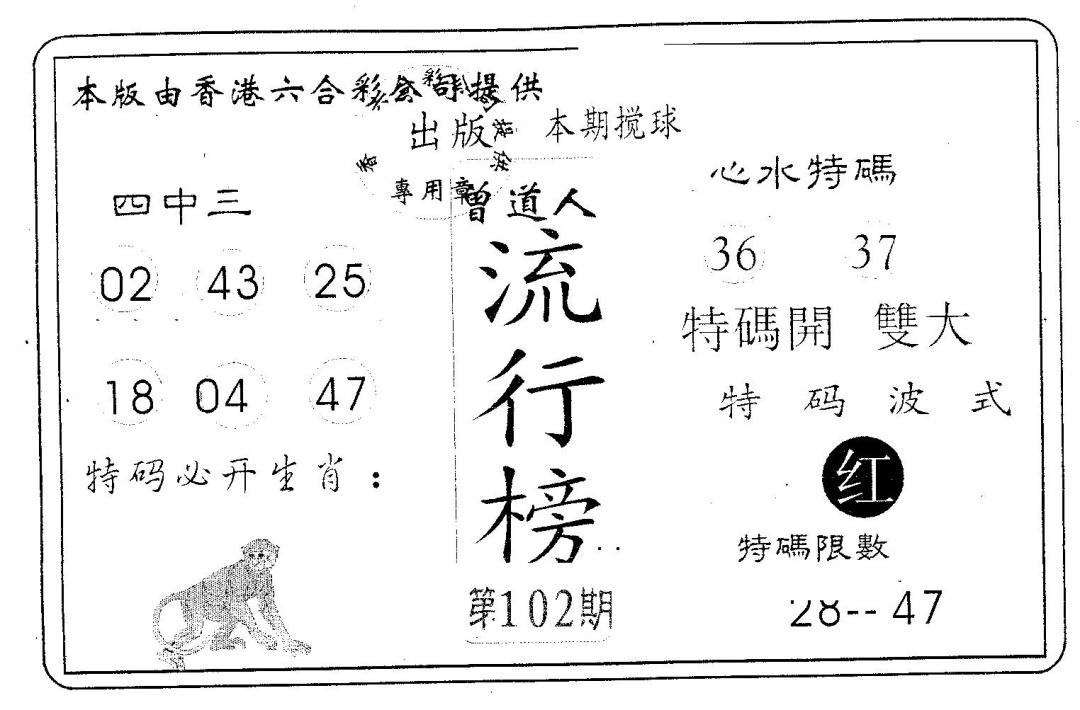 本版由香港六合彩公司提供
出版 本期搅球
專用章
四中三
02 43 25
18 04 47
特码必开生肖：
曾道人
流行榜
第102期
心水特碼
36 37
特碼開 雙大
特码波式
红
特碼限數
28--47